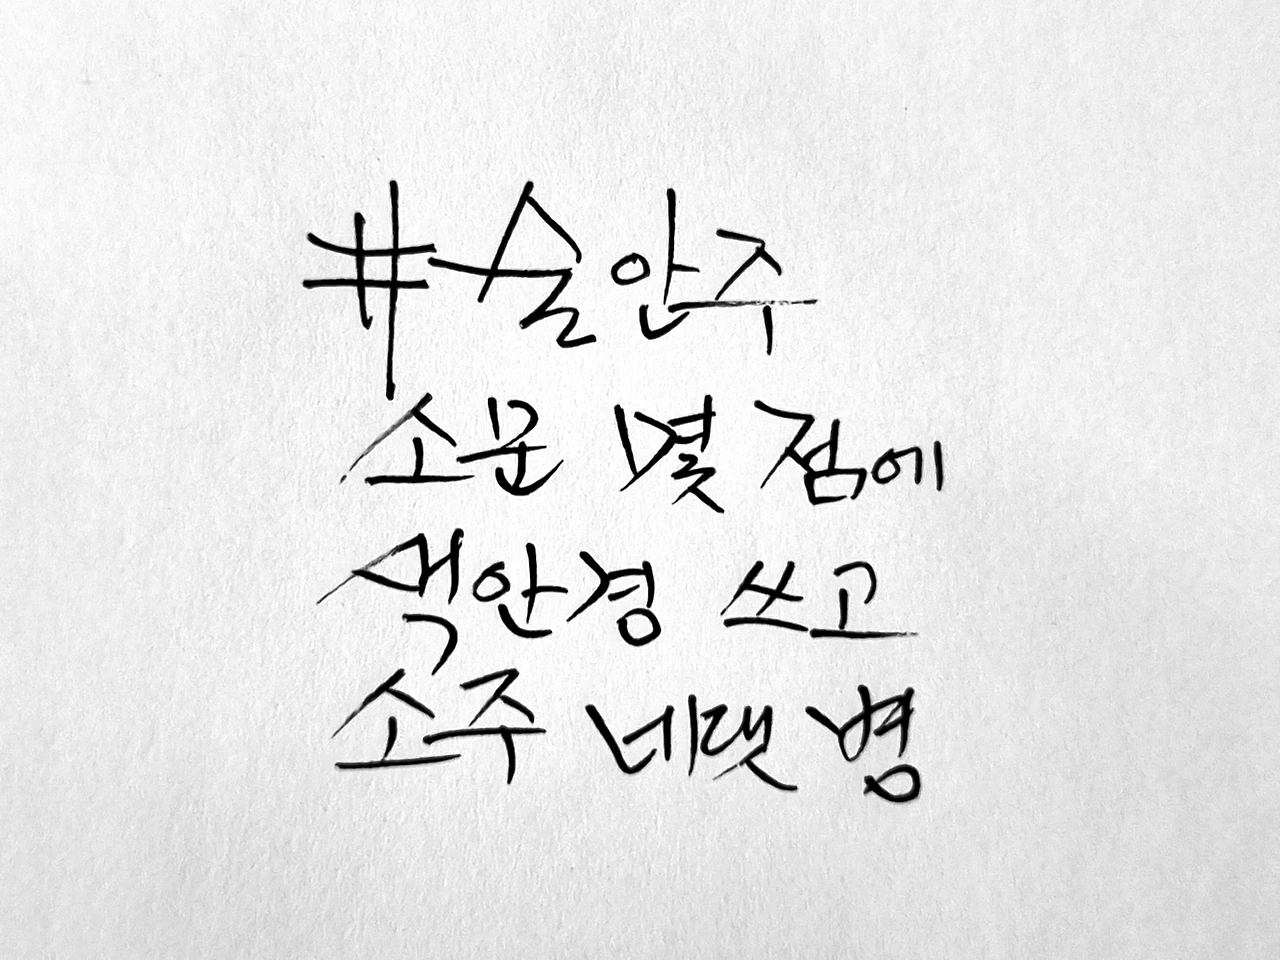 #술안주
소문 몇 점에
색안경 쓰고
소주 네댓 병